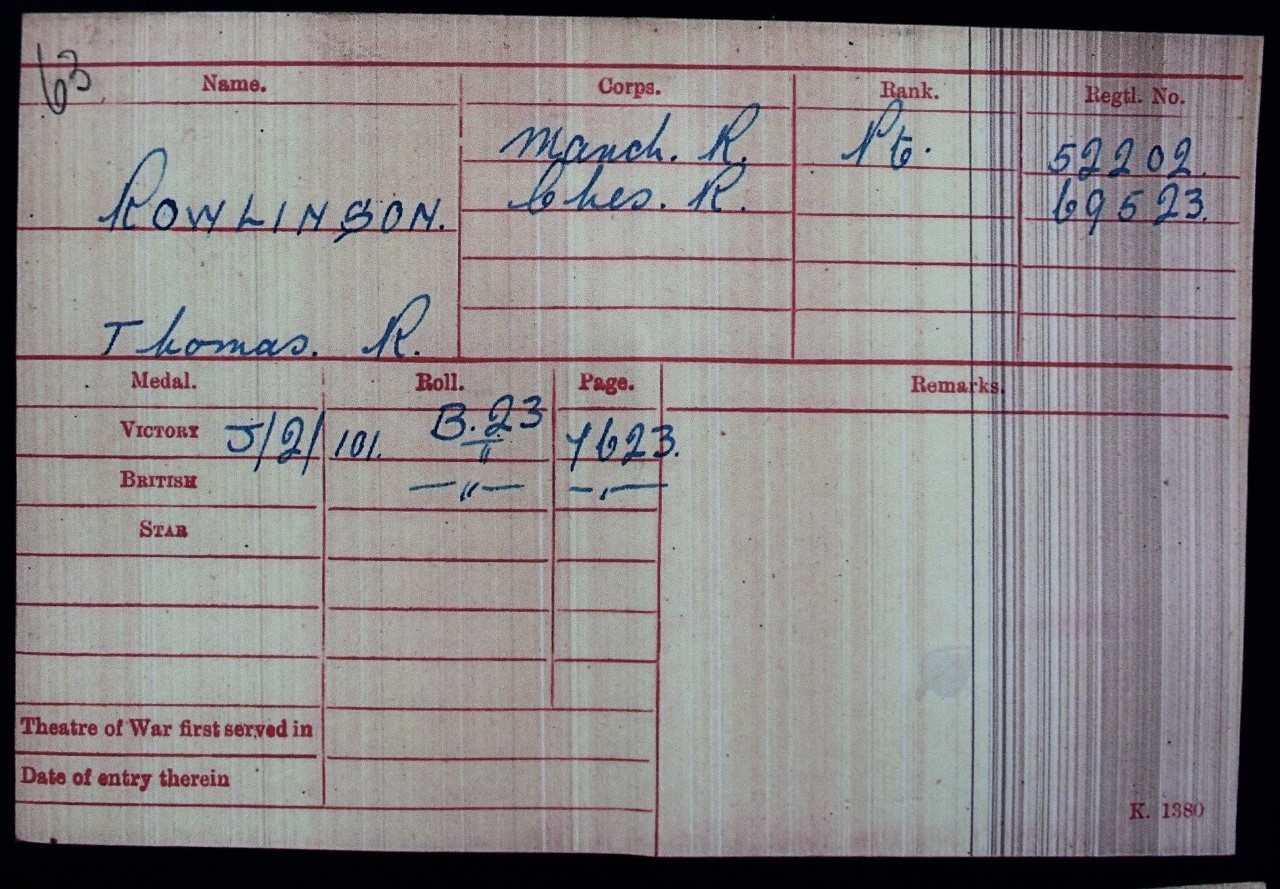 63
Name. Corps. Rank. Regtl. No.
Manch. R. Pte. 52202.
ROWLINSON. Ches. R. 69523.
Thomas. R.
Medal. Roll. Page. Remarks.
VICTORY J/2/101. B.23 7623.
BRITISH —〃— —〃—
STAR
Theatre of War first served in
Date of entry therein
K. 1380